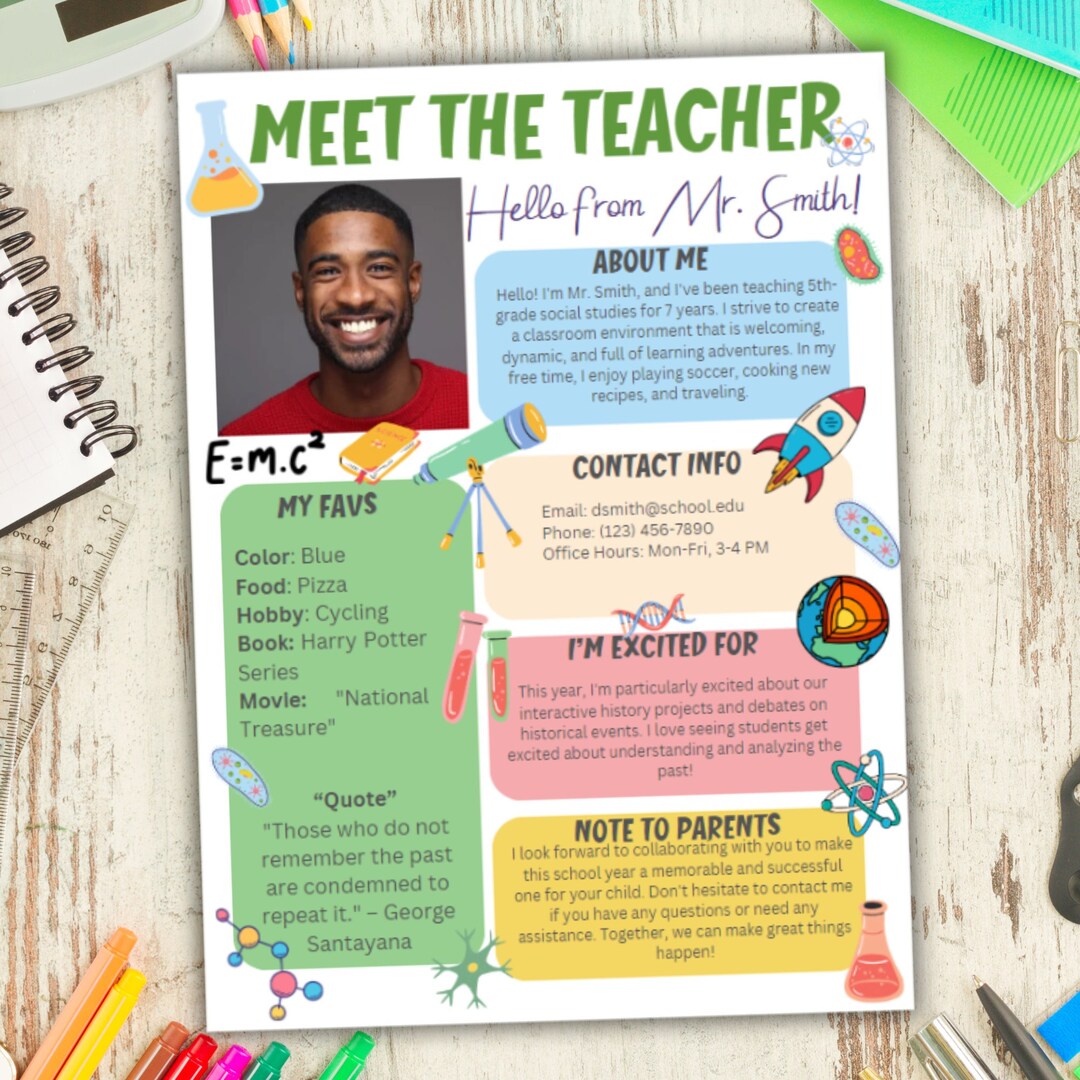 MEET THE TEACHER
Hello from Mr. Smith!
ABOUT ME
Hello! I'm Mr. Smith, and I've been teaching 5th-
grade social studies for 7 years. I strive to create
a classroom environment that is welcoming,
dynamic, and full of learning adventures. In my
free time, I enjoy playing soccer, cooking new
recipes, and traveling.
E=m.c²
SCIENCE
CONTACT INFO
Email: dsmith@school.edu
Phone: (123) 456-7890
Office Hours: Mon-Fri, 3-4 PM
MY FAVS
Color: Blue
Food: Pizza
Hobby: Cycling
Book: Harry Potter
Series
Movie: "National
Treasure"
“Quote”
"Those who do not
remember the past
are condemned to
repeat it." – George
Santayana
I'M EXCITED FOR
This year, I'm particularly excited about our
interactive history projects and debates on
historical events. I love seeing students get
excited about understanding and analyzing the
past!
NOTE TO PARENTS
I look forward to collaborating with you to make
this school year a memorable and successful
one for your child. Don't hesitate to contact me
if you have any questions or need any
assistance. Together, we can make great things
happen!